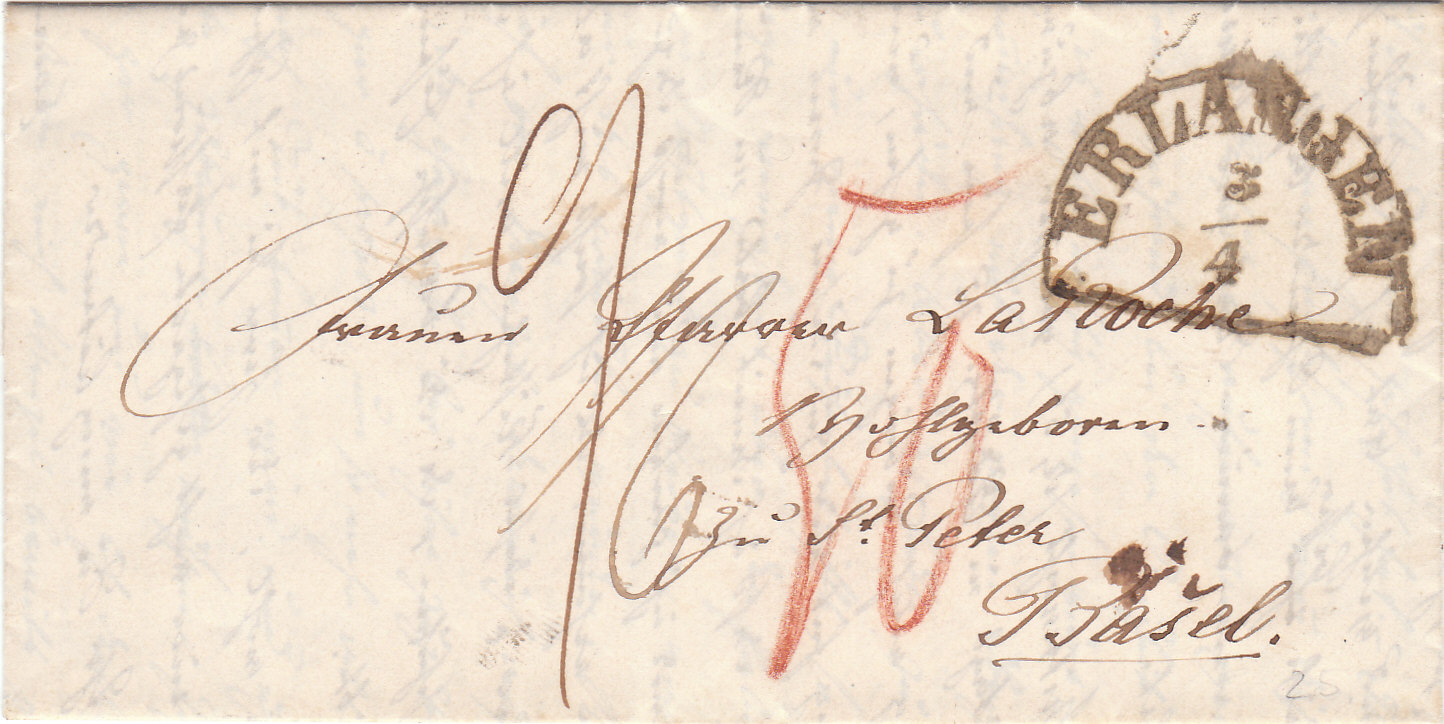 ERLANGEN
3
4
Frauen Pfarrer LaRoche
Wohlgeboren
zu St. Peter
Basel.
25